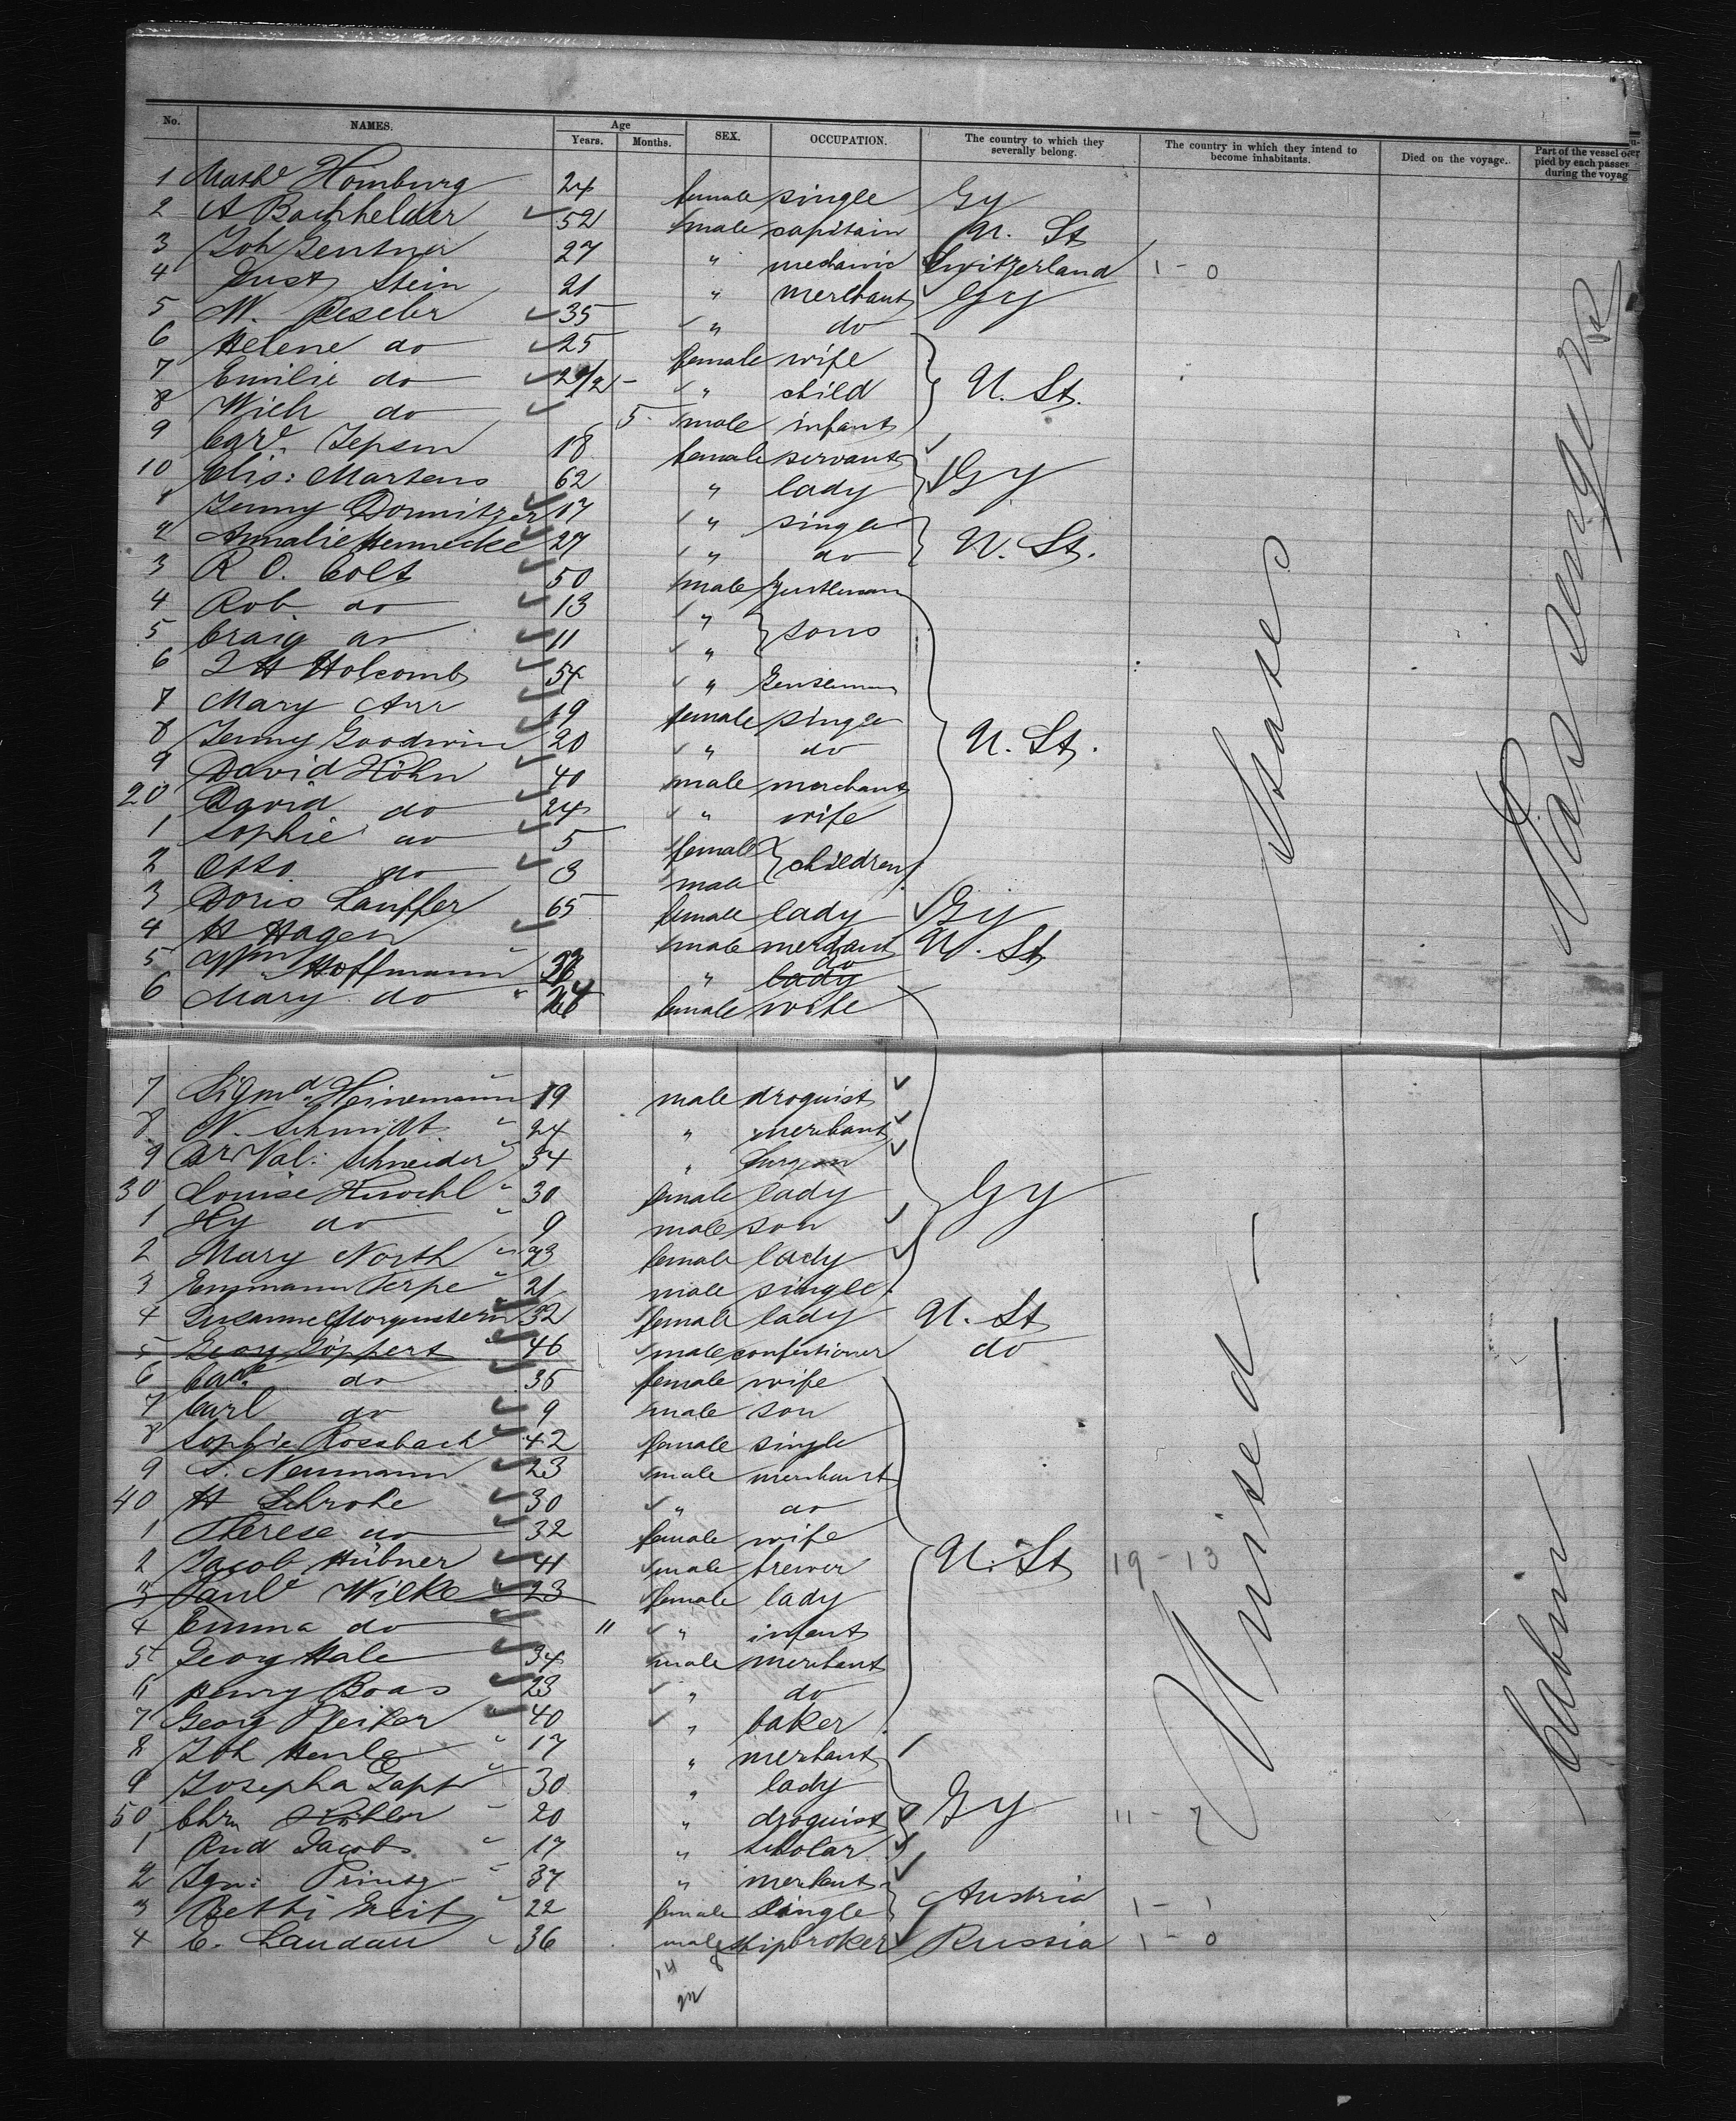 No. NAMES. Age Years. Months. SEX. OCCUPATION. The country to which they severally belong. The country in which they intend to become inhabitants. Died on the voyage. Part of the vessel occupied by each passenger during the voyage
1 Mathe Homburg 24 female single Gy
2 A Bachhelder 52 male capitain U. St
3 Joh Zentner 27 " mechanic Switzerland 1 - 0
4 Gust Stein 21 " merchant Gy
5 W. 35 " do
6 Helene do 25 female wife
7 Emilie do 2 1/2 - " child U. St.
8 Wilh do 5 male infant
9 Care Jepsen 18 female servant
10 Elis: Martens 62 " lady Gy
1 Jenny Dormitzer 17 " single
2 Amalie Hennecke 27 " do U. St.
3 R O. Colt 50 male gentleman
4 Rob do 13 "
5 Craig do 11 " sons
6 Holcomb 54 " Gentleman
7 Mary Arr 19 female single
8 Jenny Goodwin 20 " do U. St.
9 David Höhn 40 male merchant
20 David do 24 " wife
1 Sophie do 5 female
2 Otto do 3 male children
3 Doris Lauffer 65 female lady Gy
4 H Hagen male merchant U. St
5 Wm Hoffmann " lady do
6 Mary do female wife
7 Sigmd Heinemann 19 male droguist
8 N. Schmidt 24 " merchant
9 Dr Val: Schneider 34 " Surgeon
30 Louise 30 female lady Gy
1 Hy do 9 male son
2 Mary North 23 female lady
3 Emmann Serpe 21 male single
4 Susanne Morgenstern 32 female lady U. St
5 Georg Göppert 46 male confectioner do
6 Cathe do 35 female wife
7 Carl do 9 male son
8 Sophie Rossbach 42 female single
9 S. Neumann 23 male merchant
40 H Schrohe 30 " do
1 Therese do 32 female wife
2 Jacob Hübner 41 male brewer U. St 19 - 13
3 Paule Wilke 23 female lady
4 Emma do 11 " infant
5 Georg Hale 34 male merchant
6 Henry Boas 23 " do
7 Georg Pfeifer 40 " baker
8 Joh Henle 17 " merchant
9 Josepha Zapf 30 " lady
50 Chrn Köhler 20 " droguist Gy 11 - 7
1 Rud Jacobs 17 " scholar
2 Ign: Printz 37 " merchant
3 Betti 22 female Single Austria 1 - 1
4 C. Landau 36 male shipbroker Russia 1 - 0
14 8
22
States
United -
Passengers
Cabin -